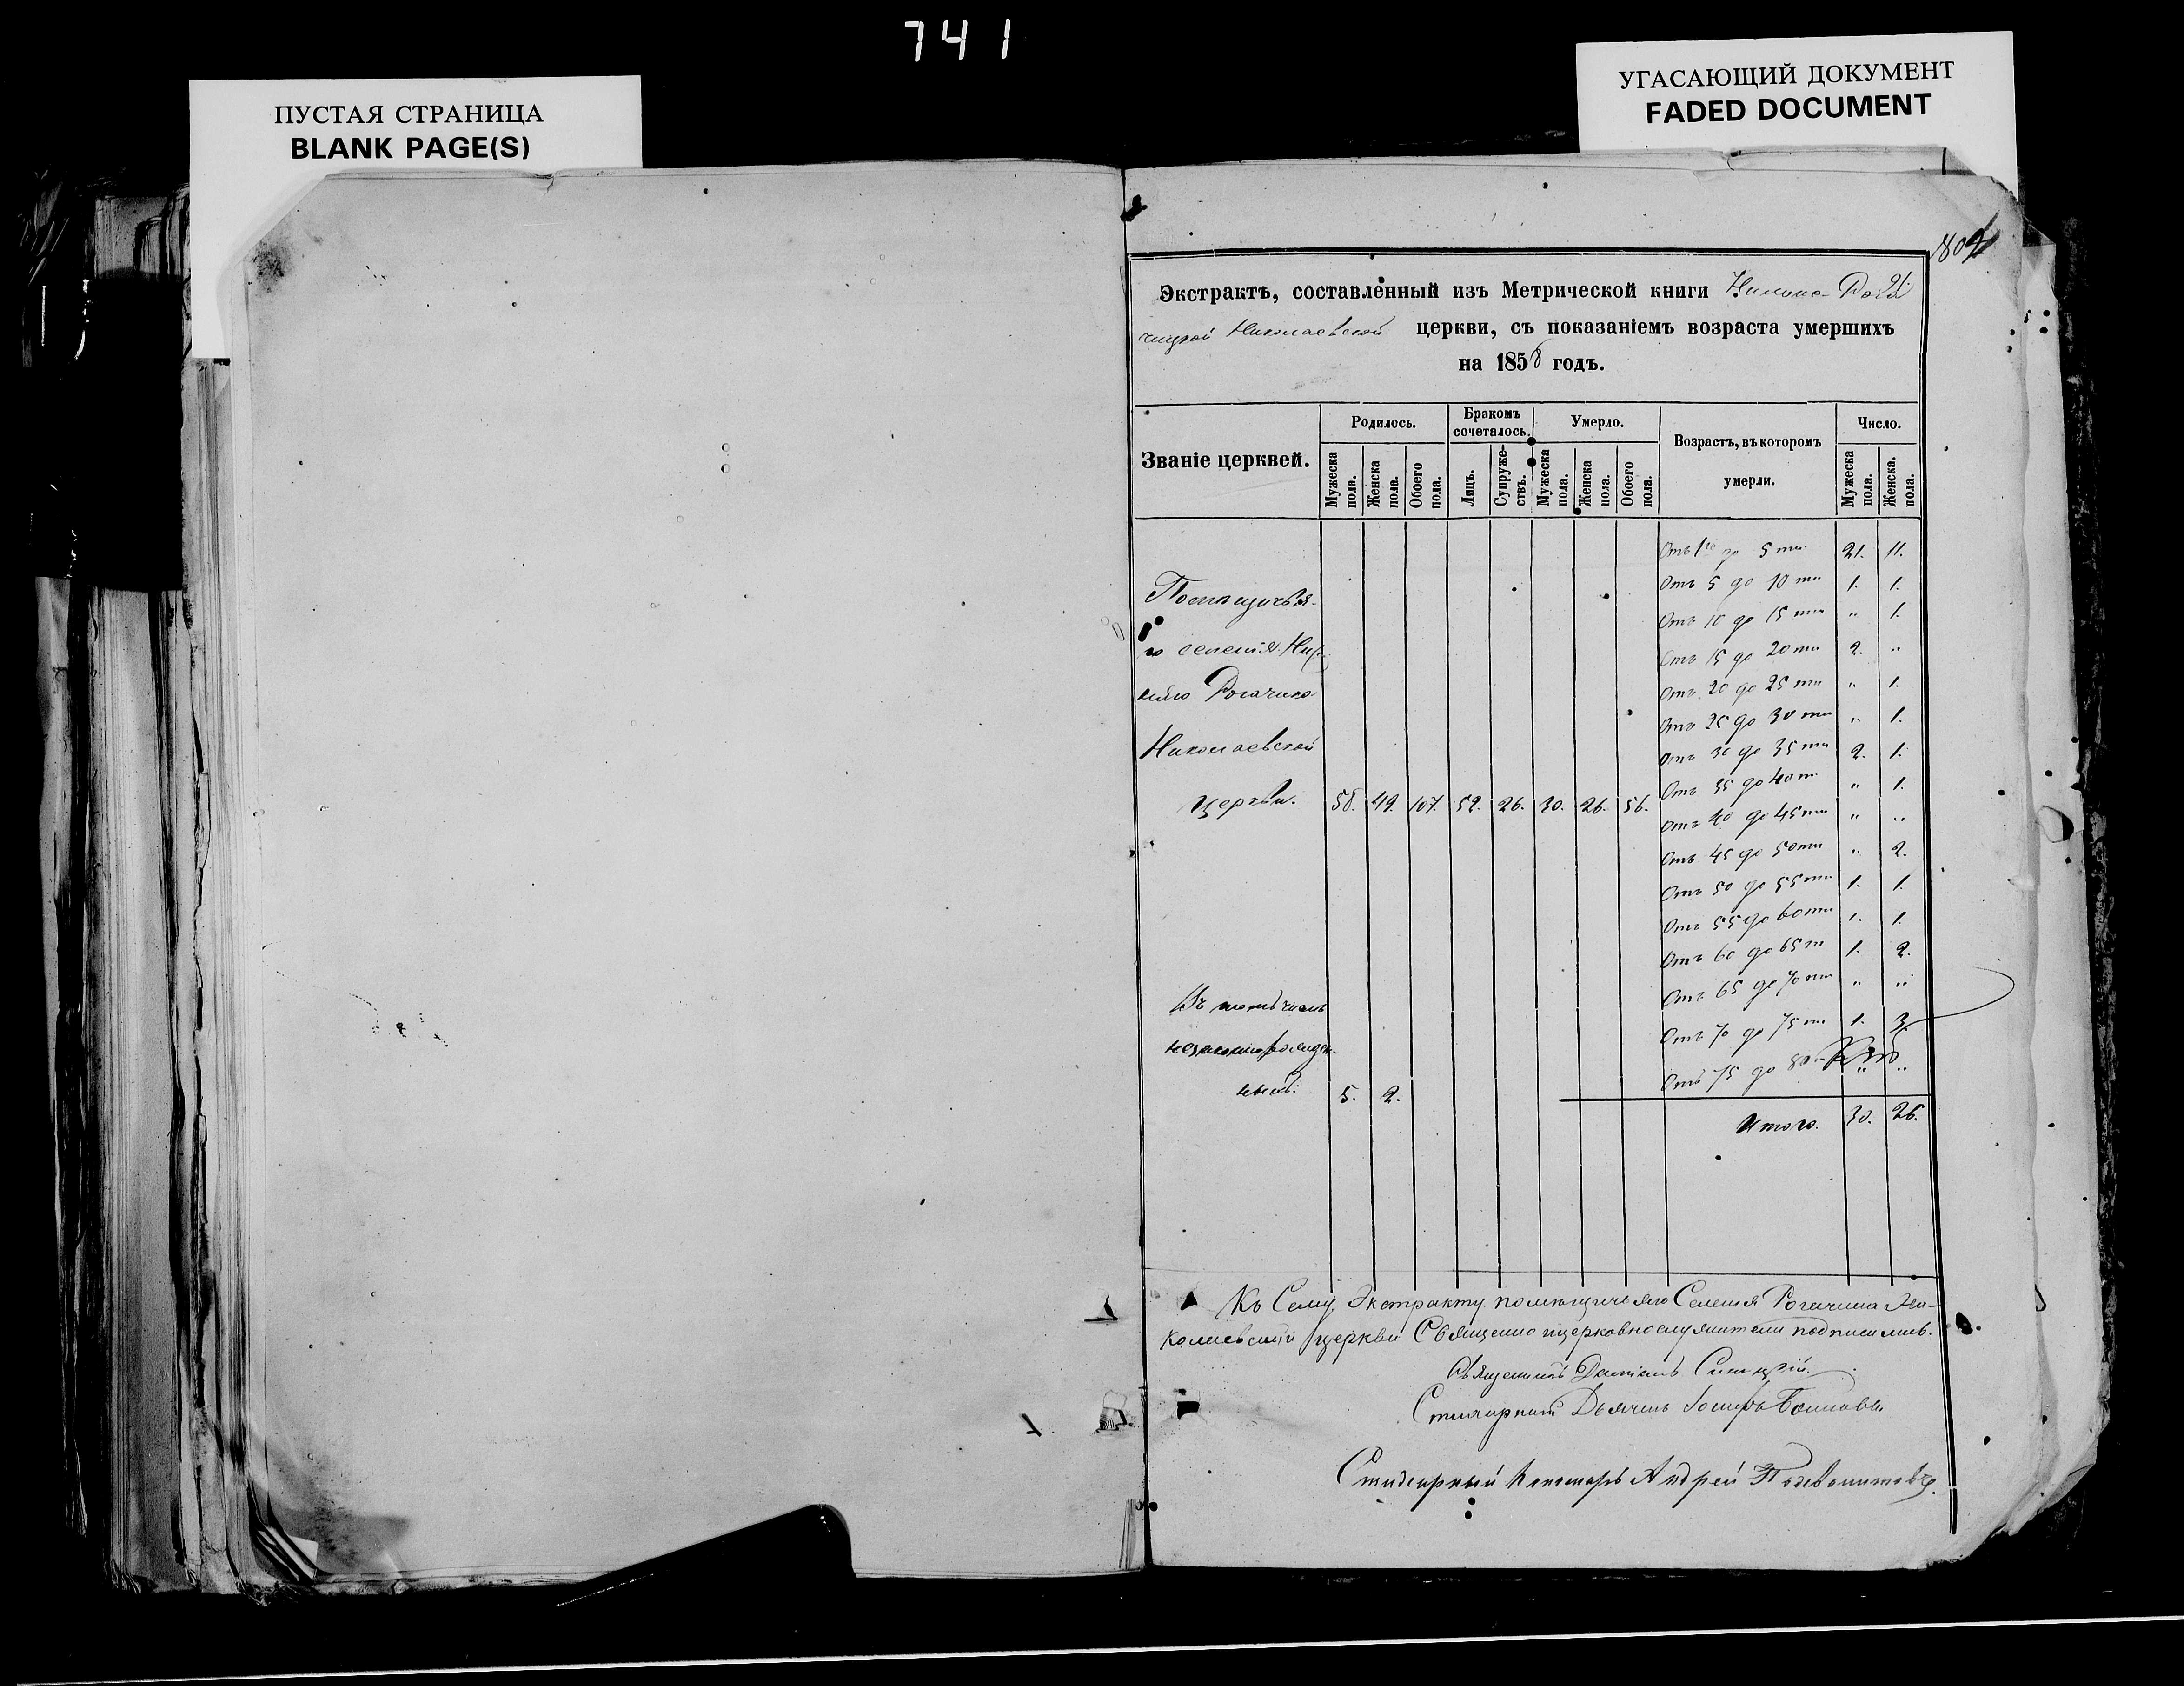 741
ПУСТАЯ СТРАНИЦА
BLANK PAGE(S)
УГАСАЮЩИЙ ДОКУМЕНТ
FADED DOCUMENT
Экстрактъ, составленный изъ Метрической книги
Николаевской церкви, съ показаніемъ возраста умершихъ
на 1858 годъ.
Званіе церквей. Родилось. Бракомъ сочеталось. Умерло. Возрастъ, въ которомъ умерли. Число.
Мужеска пола. Женска пола. Обоего пола. Лицъ. Супружествъ. Мужеска пола. Женска пола. Обоего пола. Мужеска пола. Женска. пола.
Отъ 1го до 5 ти 21. 11.
Отъ 5 до 10 ти 1. 1.
Отъ 10 до 15 ти " 1.
Отъ 15 до 20 ти 2. "
Отъ 20 до 25 ти " 1.
Отъ 25 до 30 ти " 1.
Отъ 30 до 35 ти 2. 1.
Отъ 35 до 40 т " 1.
Отъ 40 до 45 ти " "
Отъ 45 до 50 ти " 2.
Отъ 50 до 55 ти 1. 1.
Отъ 55 до 60 ти 1. 1.
Отъ 60 до 65 т 1. 2.
Отъ 65 до 70 ти " "
Отъ 70 до 75 ти 1. 3.
Отъ 75 до 80 " "
Итого. 30. 26.
Помѣщичья-
го селенія Ниж
няго Рогачика
Николаевской
церкви. 58. 49. 107. 52. 26. 30. 26. 56.
Въ томъ числѣ
незаконнорожден-
ныхъ: 5. 2.
Къ Сему Экстракту помѣщичьяго Селенія Рогачика Ни-
колаевской церкви Священно и церковнослужители подписались.
Священникъ Даміанъ
Стихарный Дьячекъ Іосифъ
Стихарный Пономарь Андрей